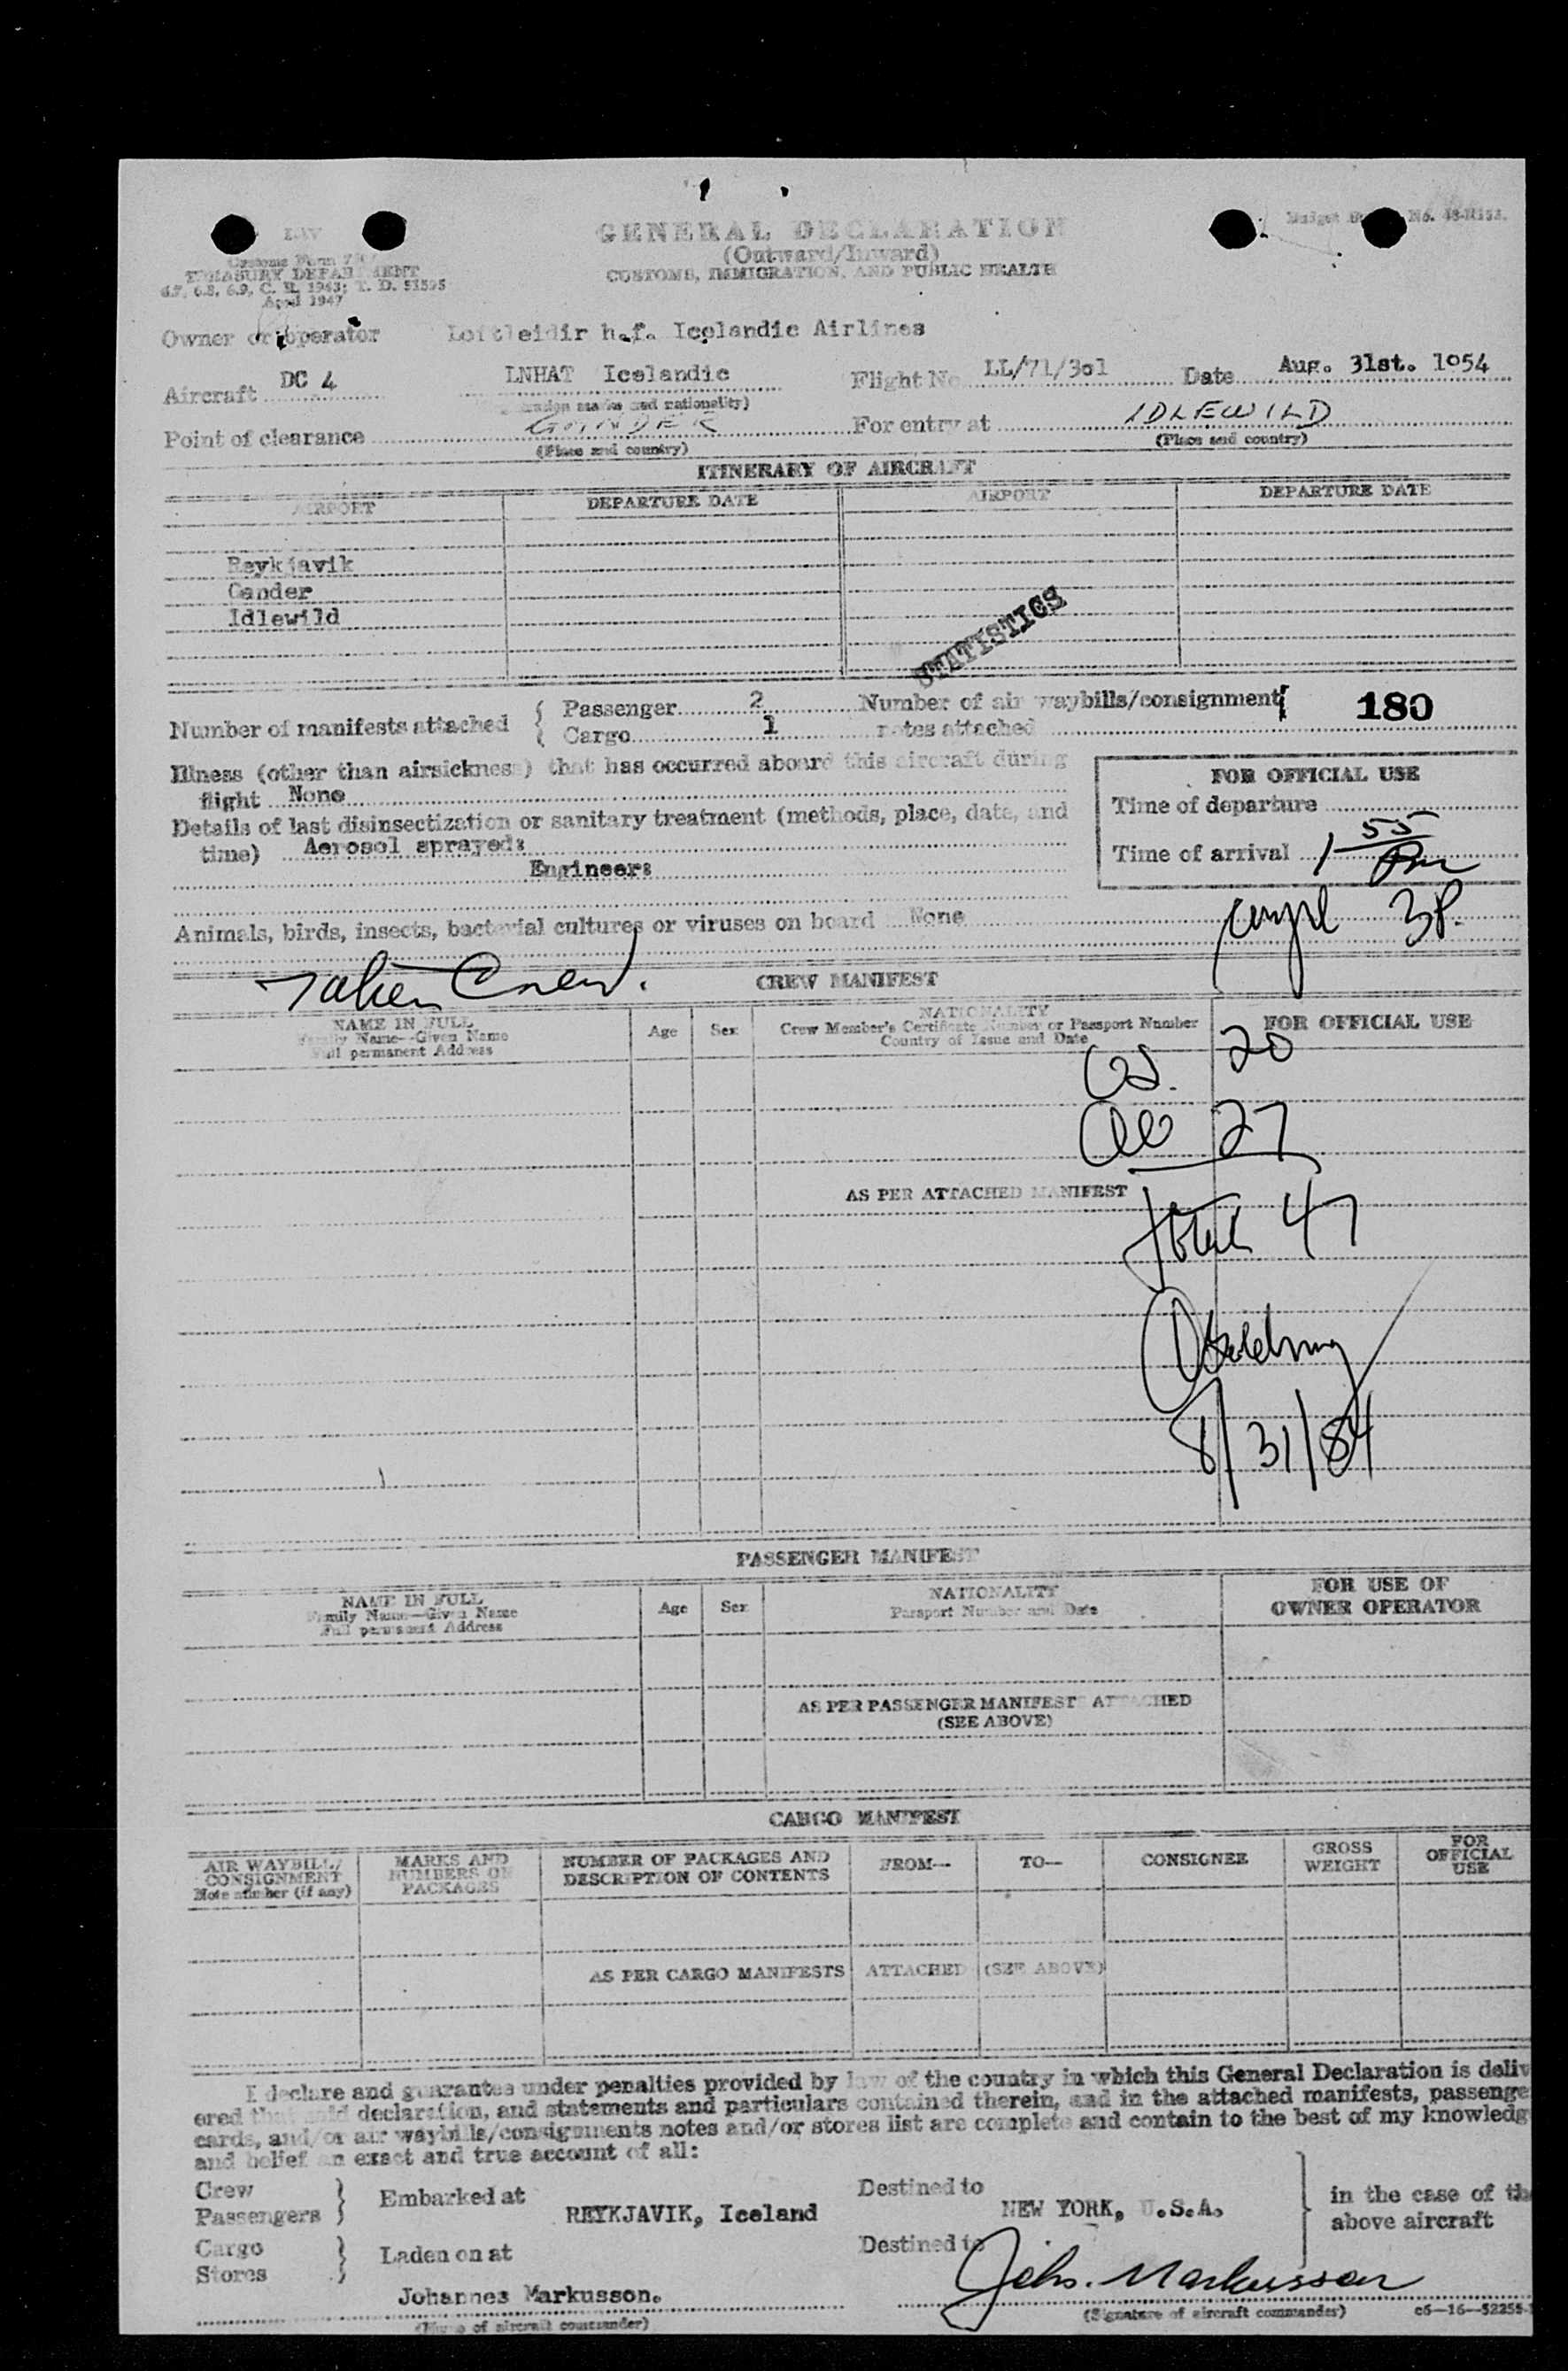 GENERAL DECLARATION
(Outward/Inward)
CUSTOMS, IMMIGRATION, AND PUBLIC HEALTH
Customs Form
TREASURY DEPARTMENT
4.7, 6.8, 6.9, C. R. 1943; T. D. 51595
April 1947
Budget No. 48-R153.
Owner or operator Loftleidir h.f. Icelandic Airlines
Aircraft DC 4 LNHAT Icelandic Flight No. LL/71/301 Date Aug. 31st. 1954
(Registration marks and nationality)
Point of clearance GANDER For entry at IDLEWILD
(Place and country) (Place and country)
ITINERARY OF AIRCRAFT
AIRPORT DEPARTURE DATE AIRPORT DEPARTURE DATE
Reykjavik
Gander
Idlewild
STATISTICS
Number of manifests attached { Passenger 2 Number of air waybills/consignment
Cargo 1 notes attached
180
Illness (other than airsickness) that has occurred aboard this aircraft during
flight None
Details of last disinsectization or sanitary treatment (methods, place, date, and
time) Aerosol sprayed:
Engineer:
FOR OFFICIAL USE
Time of departure
Time of arrival 1 55 Pm
Animals, birds, insects, bacterial cultures or viruses on board None
38.
Crew.
CREW MANIFEST
NAME IN FULL
Family Name--Given Name
Full permanent Address
Age Sex
NATIONALITY
Crew Member's Certificate Number or Passport Number
Country of Issue and Date
FOR OFFICIAL USE
20
27
AS PER ATTACHED MANIFEST
Total 47
8/31/54
PASSENGER MANIFEST
NAME IN FULL
Family Name—Given Name
Full permanent Address
Age Sex
NATIONALITY
Passport Number and Date
FOR USE OF
OWNER OPERATOR
AS PER PASSENGER MANIFEST ATTACHED
(SEE ABOVE)
CARGO MANIFEST
AIR WAYBILL/
CONSIGNMENT
Note number (if any)
MARKS AND
NUMBERS ON
PACKAGES
NUMBER OF PACKAGES AND
DESCRIPTION OF CONTENTS
FROM— TO— CONSIGNEE
GROSS
WEIGHT
FOR
OFFICIAL
USE
AS PER CARGO MANIFESTS ATTACHED (SEE ABOVE)
I declare and guarantee under penalties provided by law of the country in which this General Declaration is deliv
ered that said declaration, and statements and particulars contained therein, and in the attached manifests, passenge
cards, and/or air waybills/consignments notes and/or stores list are complete and contain to the best of my knowledg
and belief an exact and true account of all:
Crew
Passengers } Embarked at REYKJAVIK, Iceland Destined to NEW YORK, U.S.A. in the case of the
above aircraft
Cargo
Stores } Laden on at Destined to
Johannes Markusson. Johs. Markusson
(Name of aircraft commander) (Signature of aircraft commander) c6—16—52255-1